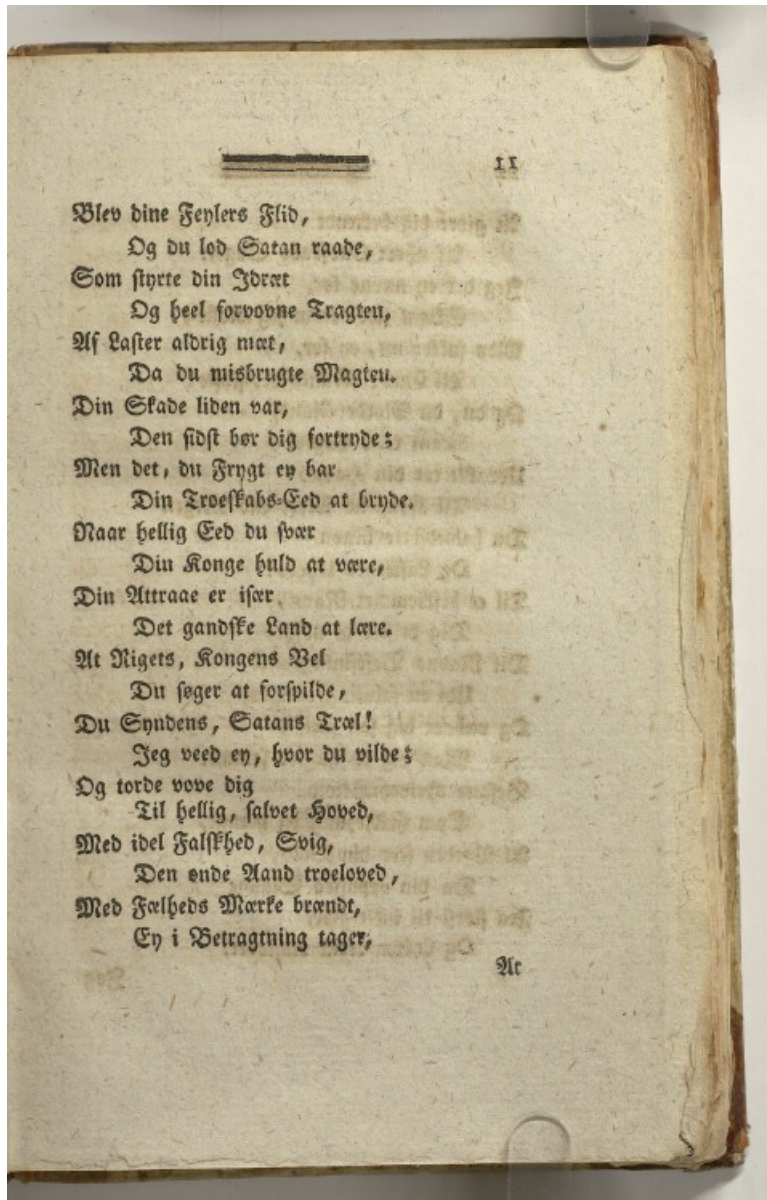 11
Blev dine Feylers Flid,
Og du lod Satan raade,
Som styrte din Idræt
Og heel forvovne Tragten,
Af Laster aldrig mæt,
Da du misbrugte Magten.
Din Skade liden var,
Den sidst bør dig fortryde;
Men det, du Frygt ey bar
Din Troeskabs-Eed at bryde.
Naar hellig Eed du svær
Din Konge huld at være,
Din Attraae er især
Det gandske Land at lære.
At Rigets, Kongens Vel
Du søger at forspilde,
Du Syndens, Satans Træl!
Jeg veed ey, hvor du vilde;
Og torde vove dig
Til hellig, salvet Hoved,
Med idel Falskhed, Svig,
Den onde Aand troeloved,
Med Fælheds Mærke brændt,
Ey i Betragtning tager,
At